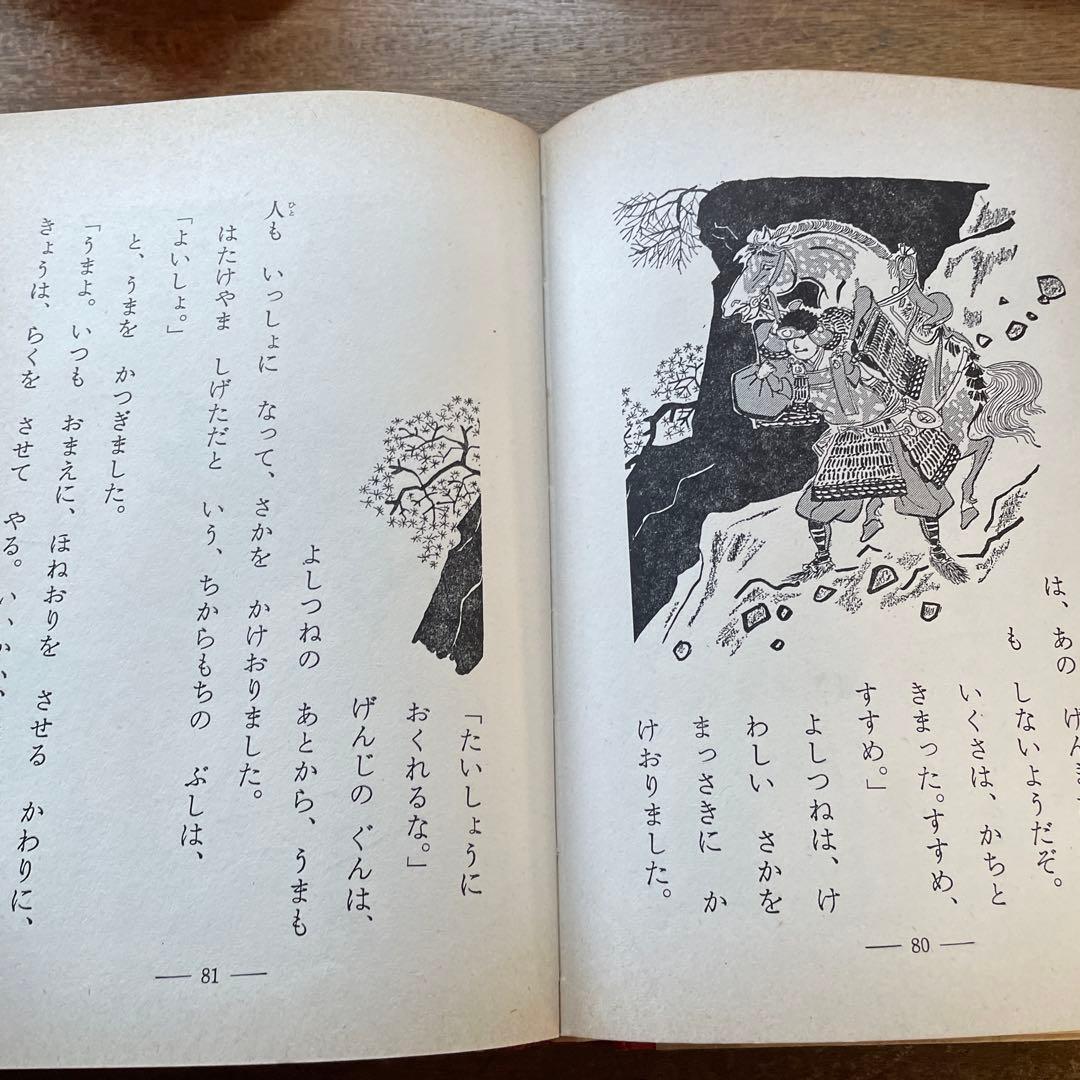 は、あの
も しないようだぞ。
いくさは、かちと
きまった。すすめ、
すすめ。」
よしつねは、け
わしい さかを
まっさきに か
けおりました。
80
「たいしょうに
おくれるな。」
げんじの ぐんは、
よしつねの あとから、うまも
人も いっしょに なって、さかを かけおりました。
ひと
はたけやま しげただと いう、ちからもちの ぶしは、
「よいしょ。」
と、うまを かつぎました。
「うまよ。いつも おまえに、ほねおりを させる かわりに、
きょうは、らくを させて やる。
81